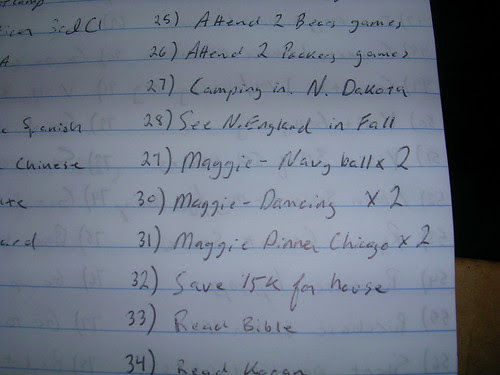 Spanish
Chinese
25) Attend 2 Bears games
26) Attend 2 Packers games
27) Camping in N. Dakota
28) See N. England in Fall
29) Maggie - Navy ball x 2
30) Maggie - Dancing x 2
31) Maggie Dinner Chicgo x 2
32) Save 15K for house
33) Read Bible
34) Read Koran